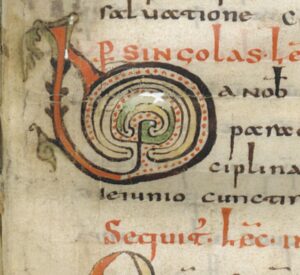 saluatione c
p̄ singolas. lec̄
Da nob̄
parae
ciplina
ieiunio cuncti
Sequit̄. lec̄.